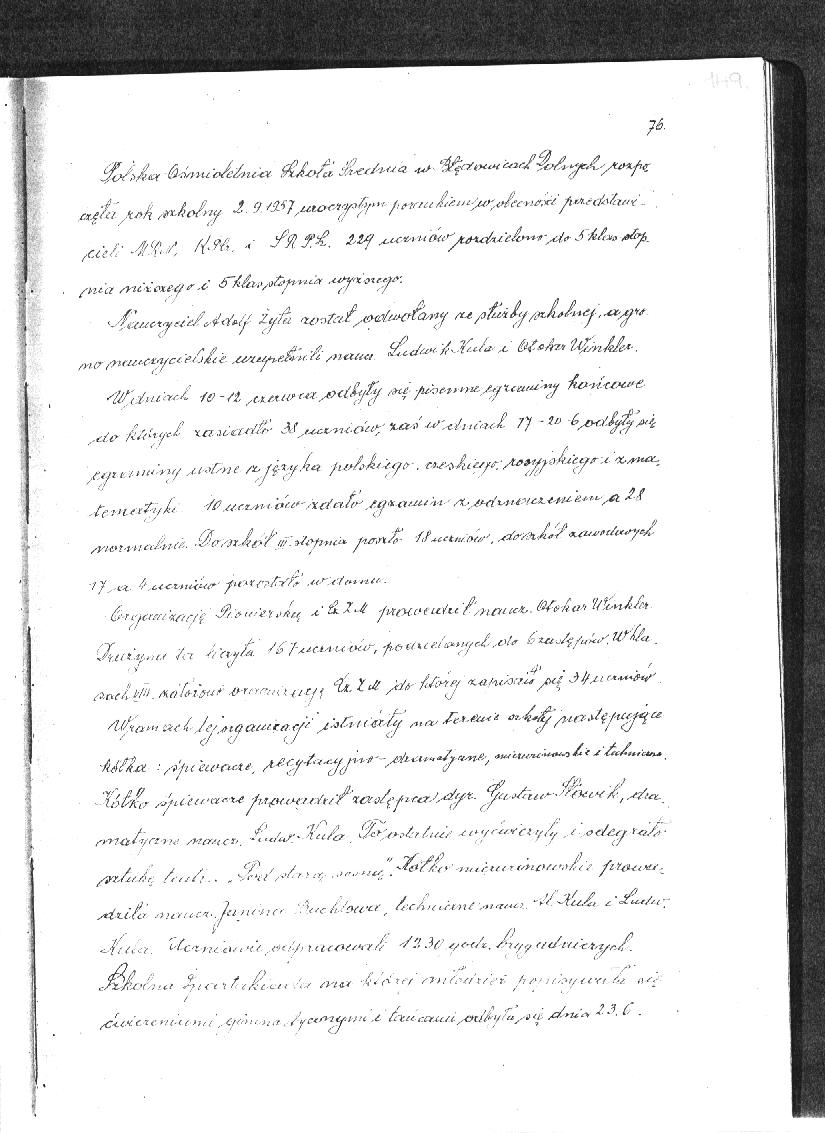 149.
76.
Polska Ośmioletnia Szkoła Średnia w Błędowicach Dolnych rozpo
częła rok szkolny 2.9.1957 uroczystym porankiem, w obecności przedstawi-
cieli M.R.N, K.Pb. i S.R.P.Sz. 229 uczniów rozdzielono do 5 klas stop
nia niższego i 5 klas stopnia wyższego.
Nauczyciel Adolf Żyła został odwołany ze służby szkolnej, a gro
no nauczycielskie uzupełnili naucz. Ludwik Kula i Otokar Winkler.
W dniach 10-12 czerwca odbyły się pisemne egzaminy końcowe
do których zasiadło 38 uczniów, zaś w dniach 17-20.6 odbyły się
egzaminy ustne z języka polskiego, czeskiego, rosyjskiego i z ma,
tematyki 10 uczniów zdało egzamin z odznaczeniem, a 28
normalnie. Do szkół III. stopnia poszło 18 uczniów, do szkół zawodowych
17 a 4 uczniów pozostało w domu.
Organizację Pionierską i Cz.Z.M prowadził naucz. Otokar Winkler
Drużyna ta liczyła 167 uczniów, podzielonych do 6 zastępów. W kla-
sach VIII. założono organizację Cz.Z.M do której zapisało się 34 uczniów.
W ramach tej organizacji istniały na terenie szkoły następujące
kółka: śpiewacze, recytacyjno-dramatyczne, miczurinowskie i techniczne.
Kółko śpiewacze prowadził zastępca dyr. Gustaw Słowik, dra,
matyczne naucz. Ludw. Kula. To ostatnie wyćwiczyły i odegrało
sztukę teatr. "Pod starą sosną". Kółko miczurinowskie prowa,
dziła naucz. Janina Buchtowa, techniczne naucz. Al. Kula i Ludw.
Kula. Uczniowie odpracowali 1330 godz. brygadniczych.
Szkolna Spartakiada na której młodzież popisywała się
ćwiczeniami gimnastycznymi i tańcami odbyła się dnia 23.6.